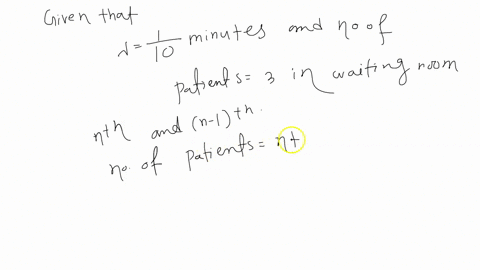 Given that
λ = 1/10 minutes and no of
patients = 3 in waiting room
nth and (n-1)th.
no. of patients = nt